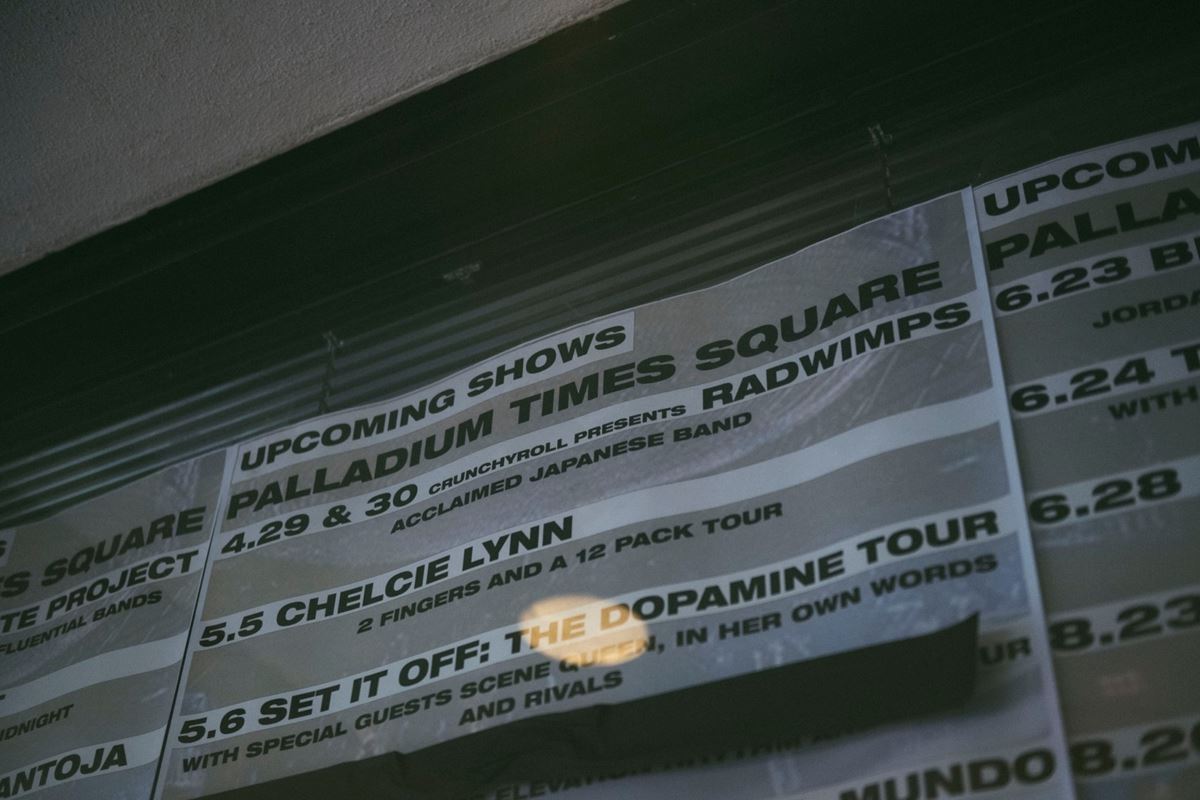 S SQUARE
TE PROJECT
FLUENTIAL BANDS
IDNIGHT
ANTOJA
UPCOMING SHOWS
PALLADIUM TIMES SQUARE
4.29 & 30 CRUNCHYROLL PRESENTS RADWIMPS
ACCLAIMED JAPANESE BAND
5.5 CHELCIE LYNN
2 FINGERS AND A 12 PACK TOUR
5.6 SET IT OFF: THE DOPAMINE TOUR
WITH SPECIAL GUESTS SCENE QUEEN, IN HER OWN WORDS
AND RIVALS
UR
MUNDO
UPCOM
PALLA
6.23 B
JORDA
6.24 T
WITH
6.28
8.23
8.2